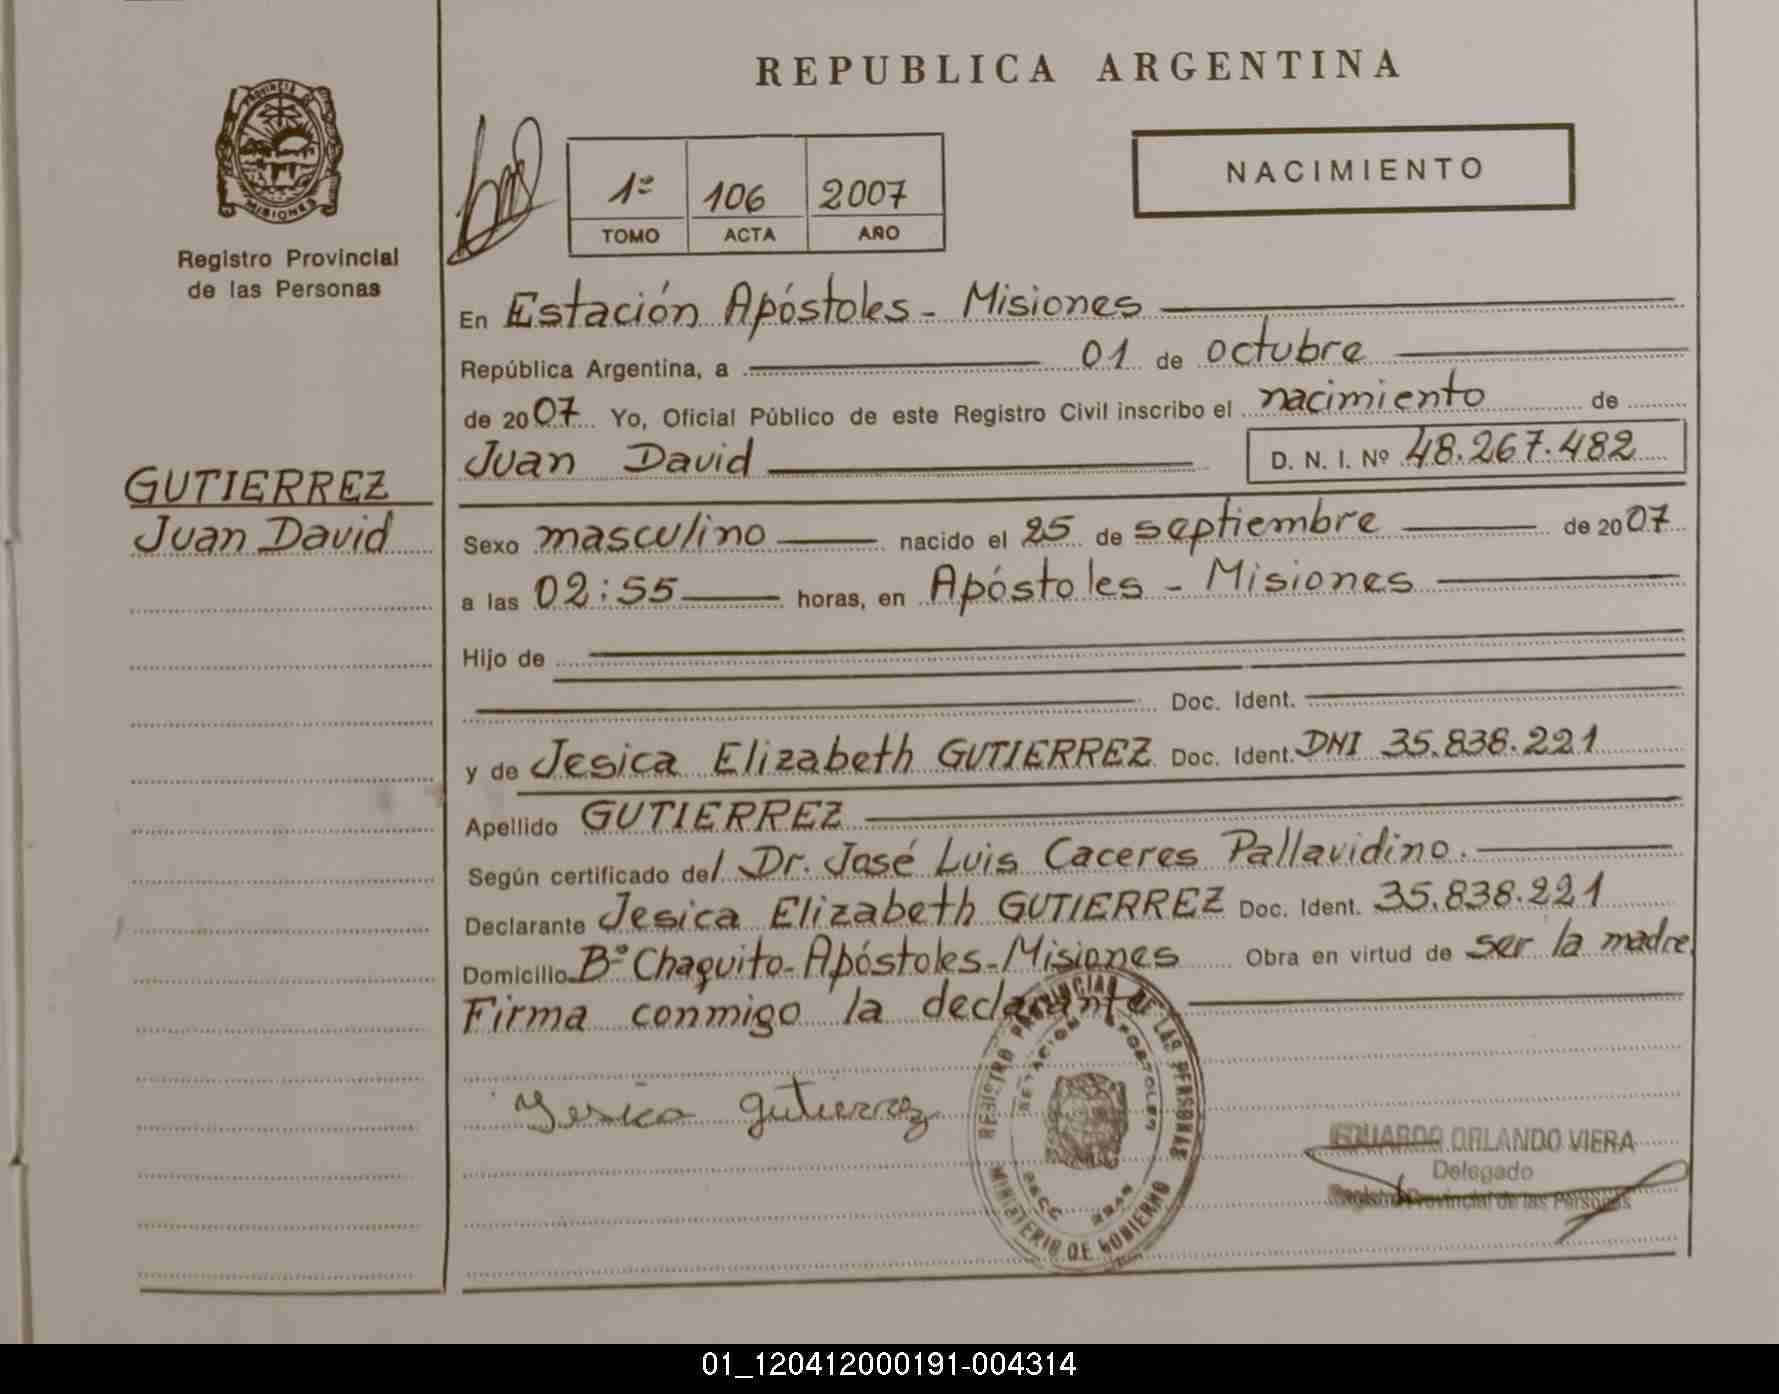 REPUBLICA ARGENTINA
PROVINCIA DE
MISIONES
Registro Provincial
de las Personas
1º 106 2007
TOMO ACTA AÑO
NACIMIENTO
En Estación Apóstoles - Misiones
República Argentina, a 01 de octubre
de 2007 Yo, Oficial Público de este Registro Civil inscribo el nacimiento de
Juan David D. N. I. Nº 48.267.482
GUTIERREZ
Juan David
Sexo masculino nacido el 25 de septiembre de 2007
a las 02:55 horas, en Apóstoles - Misiones
Hijo de
Doc. Ident.
y de Jesica Elizabeth GUTIERREZ Doc. Ident. DNI 35.838.221
Apellido GUTIERREZ
Según certificado del Dr. José Luis Caceres Pallavidino.
Declarante Jesica Elizabeth GUTIERREZ Doc. Ident. 35.838.221
Domicilio Bº Chaquito - Apóstoles - Misiones Obra en virtud de ser la madre.
Firma conmigo la declarante
Yesica gutierrez
REGISTRO PROVINCIAL DE LAS PERSONAS
MINISTERIO DE GOBIERNO
ESTACION APOSTOLES
EDUARDO ORLANDO VIERA
Delegado
Registro Provincial de las Personas
01_120412000191-004314